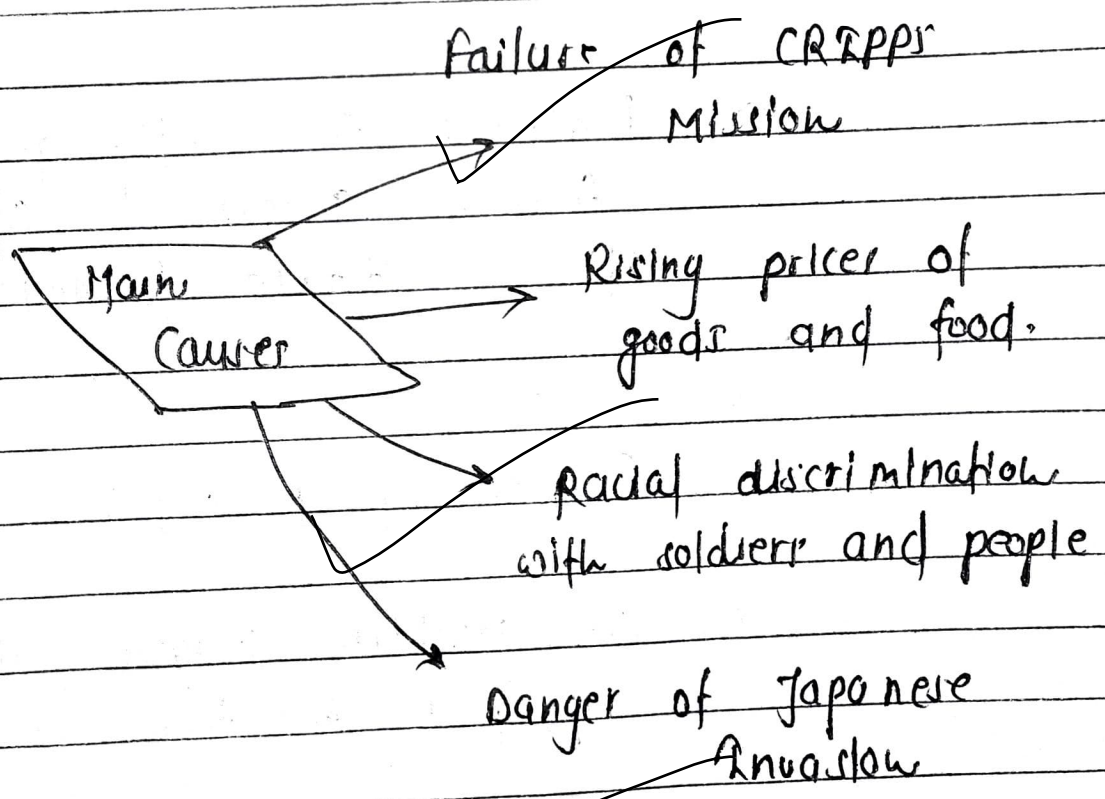 Failure of CRIPPS
Mission
Main
Causes
Rising prices of
goods and food.
Racial discrimination
with soldiers and people
Danger of Japanese
Invasion